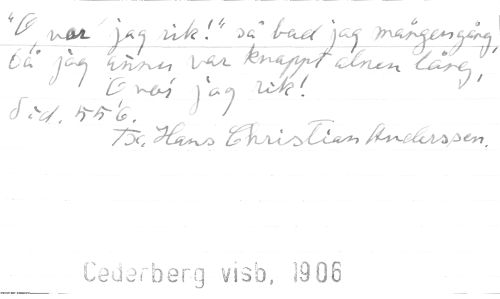 "O vor jag rik!" så bad jag mången gång,
då jag ännu var knappt alnen lång,
O vor jag rik!
Sid. 55 6.
Tx. Hans Christian Anderssen.
Cederberg visb, 1906